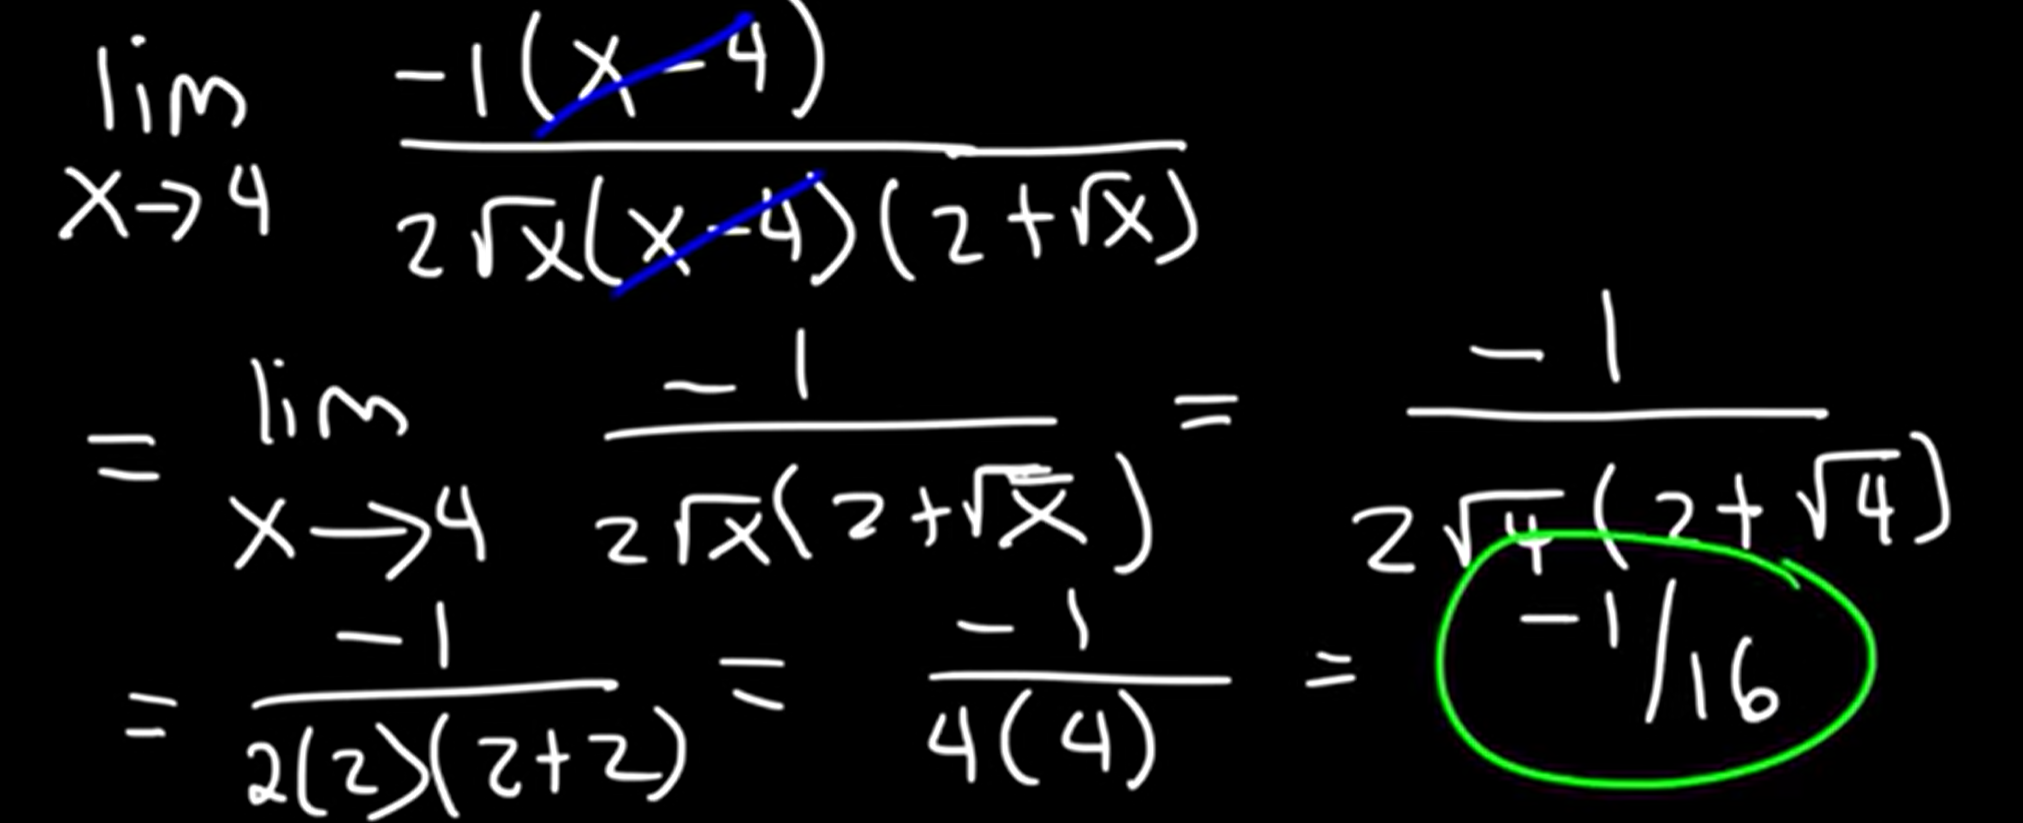 lim x→4 -1(x-4) / 2√x(x-4)(2+√x)
= lim x→4 -1 / 2√x(2+√x) = -1 / 2√4(2+√4)
= -1 / 2(2)(2+2) = -1 / 4(4) = -1/16